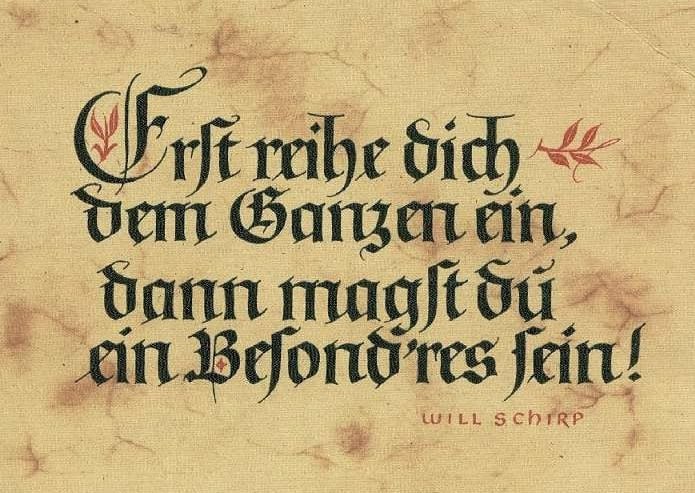 Erſt reihe dich
dem Ganzen ein,
dann magſt dŭ
ein Beſond'res ſein!
WILL SCHIRP